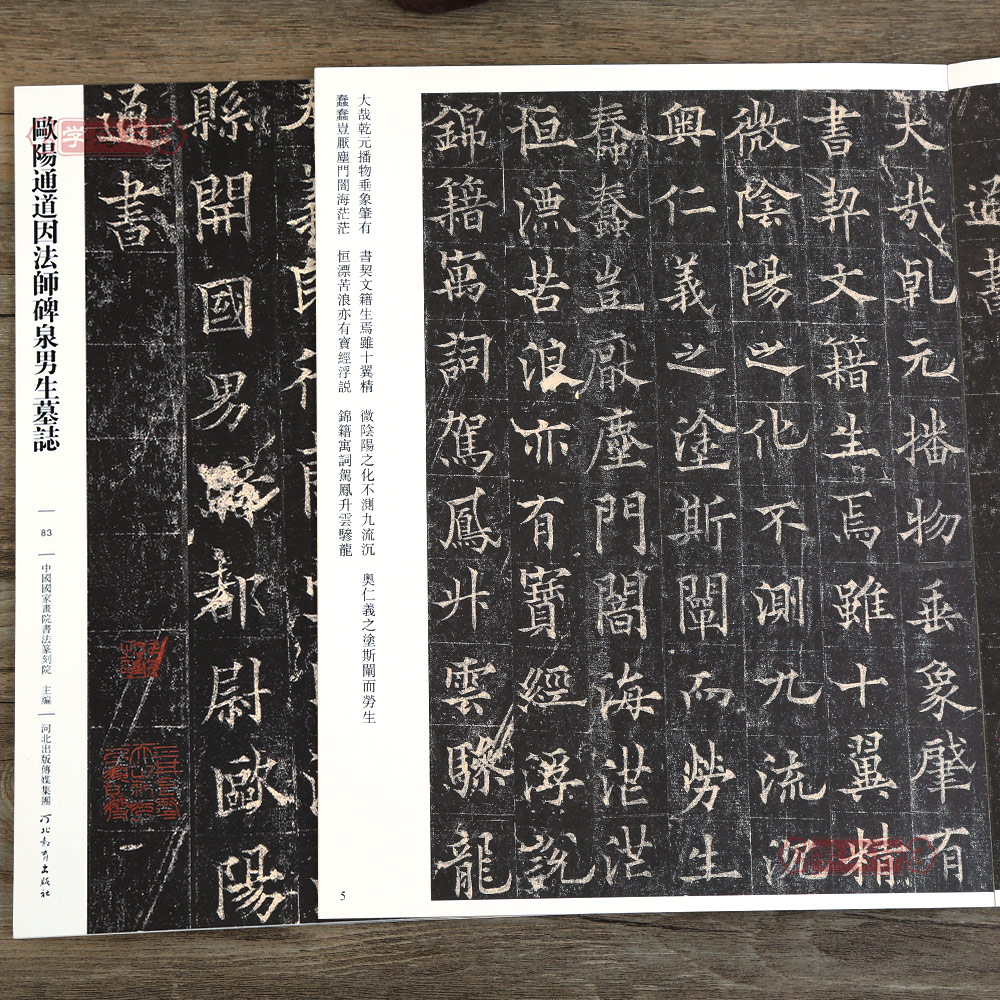 歐陽通道因法師碑泉男生墓誌
83
中國國家畫院書法篆刻院 主編
河北出版傳媒集團
河北教育出版社
縣開國男
都尉歐陽
通書
大哉乾元播物垂象肇有 書契文籍生焉雖十翼精 微陰陽之化不測九流沉 奥仁義之塗斯闡而勞生
蠢蠢豈厭塵門闇海茫茫 恒漂苦浪亦有寶經浮説 錦籍寓詞駕鳳升雲驂龍
5
通
書
大哉乾元播物垂象肇有
書契文籍生焉雖十翼精
微陰陽之化不測九流沉
奥仁義之塗斯闡而勞生
蠢蠢豈厭塵門闇海茫茫
恒漂苦浪亦有寶經浮説
錦籍寓詞駕鳳升雲驂龍